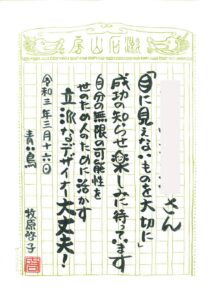 漱石山房
さん
「目に見えないものを大切に」
成功の知らせ楽しみに待っています
自分の無限の可能性を
世のため人のために活かす
立派なデザイナー大丈夫!
令和三年三月十六日
青い鳥
牧原啓子